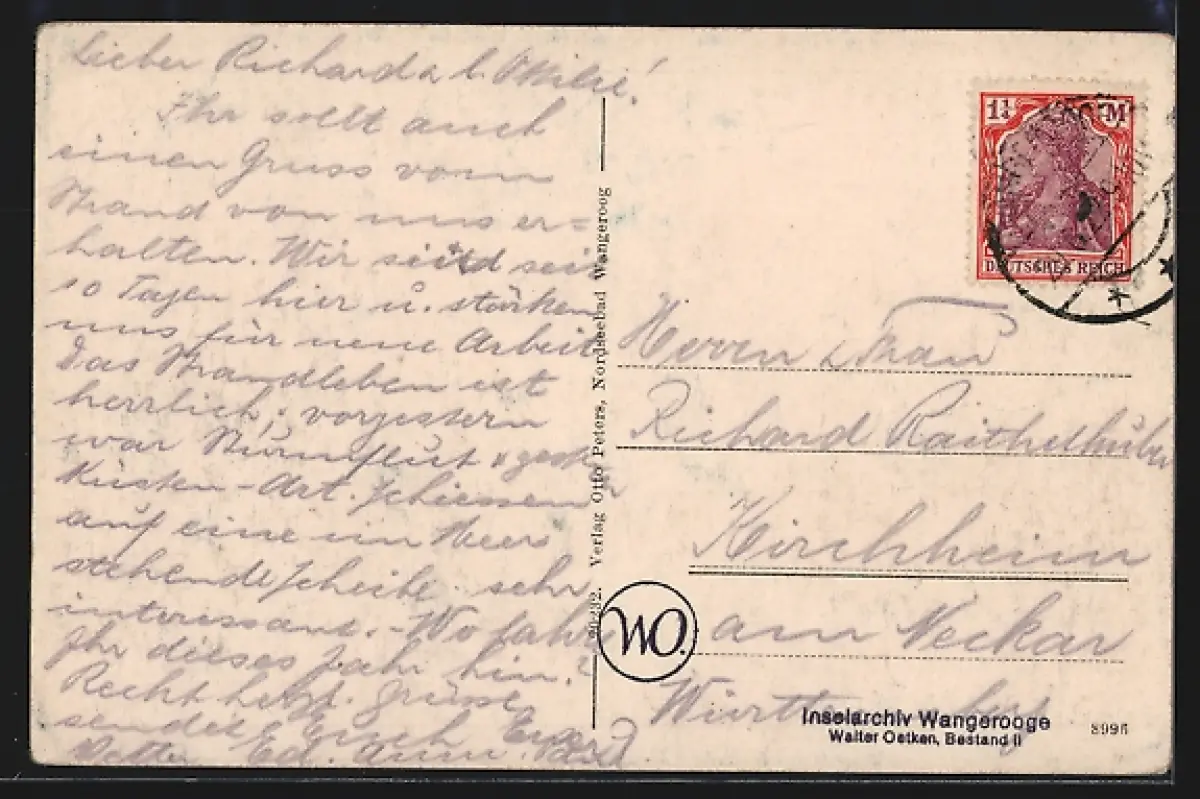 Lieber Richard u. l. Ottilie!
Ihr sollt auch
einen Gruss vom
Strand von uns er=
halten. Wir sind seit
10 Tagen hier u. stärken
uns für neue Arbeit
Das Strandleben ist
herrlich; vorgestern
war Sturmflut u. gest.
Küsten-Art. schiessen
auf eine im Meer
stehende Scheibe. sehr
interessant. - Wo fahrt
Ihr dieses Jahr hin?
Recht herzl. Grüsse
sendet Euch Euer
Vetter
Verlag Otto Peters, Nordseebad Wangeroog
WO.
1¼ M
DEUTSCHES REICH
Herrn u. Frau
Richard Raithelhuber
Kirchheim
am Neckar
Württemberg
Inselarchiv Wangerooge
Walter Oetken, Bestand II
8996